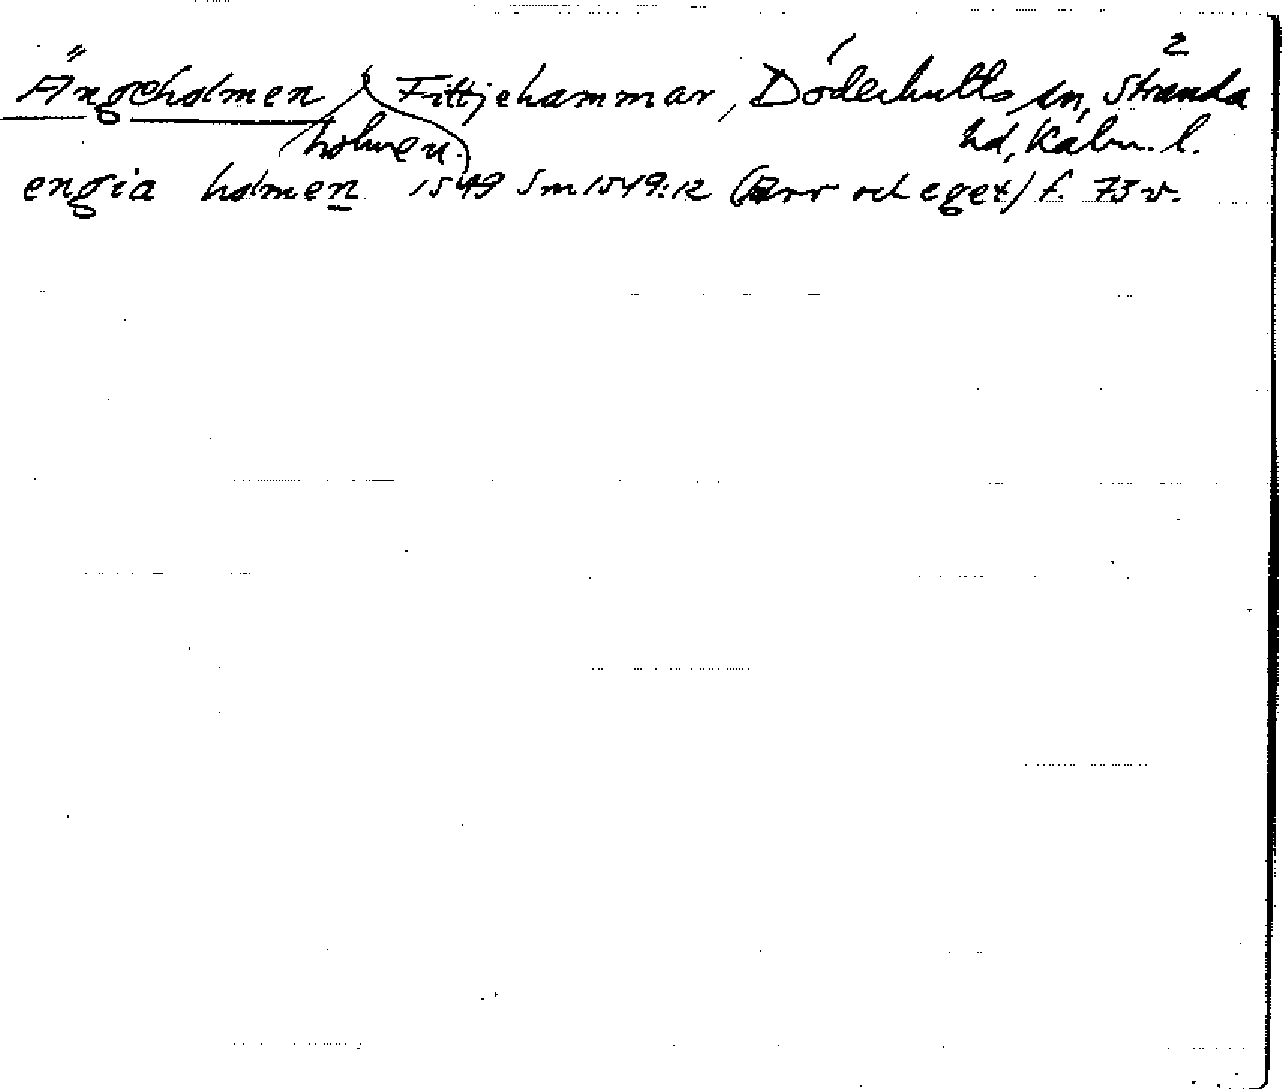 2
Ängeholmen, Fittjehammar, Döderhults sn, Stranda
holmen. hd, Kalm. l.
engia holmen 1549 Sm 1549:12 (Arr och eget) f. 73 v.